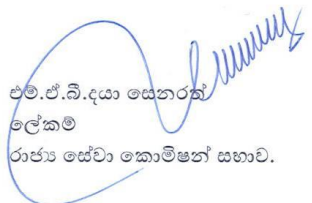 එම්.ඒ.බී.දයා සෙනරත්
ලේකම්
රාජ්‍ය සේවා කොමිෂන් සභාව.